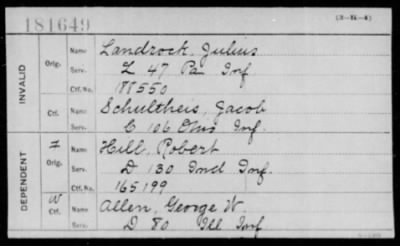 181649
(3-     )
INVALID
Orig.
Name Landrock, Julius
Serv. L 47 Pa Inf
Ctf. No. 188550
Ctf.
Name Schultheis, Jacob
Serv. C 106 Ohio Inf.
DEPENDENT
Orig.
Name Hill, Robert
Serv. D 130 Ind Inf.
Ctf. No. 165199
W
Ctf.
Name Allen, George W.
Serv. D 80 Ill Inf